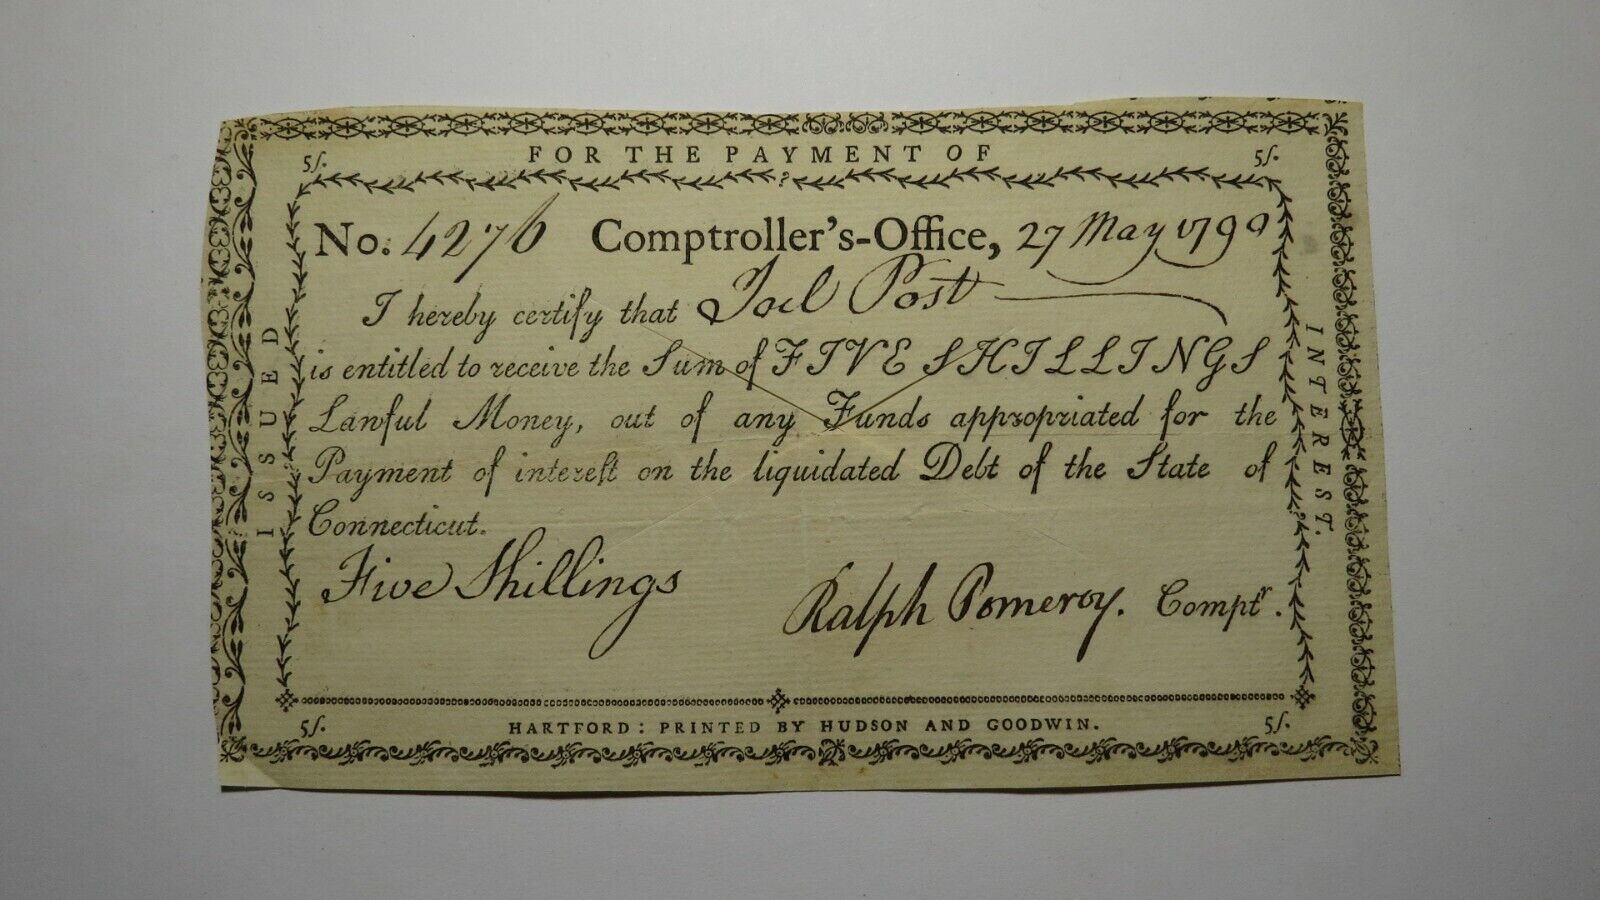 FOR THE PAYMENT OF
5ſ.
5ſ.
ISSUED
INTEREST.
No. 4276 Comptroller's-Office, 27 May 1790
I hereby certify that Joel Post
is entitled to receive the Sum of FIVE SHILLINGS
Lawful Money, out of any Funds appropriated for the
Payment of intereſt on the liquidated Debt of the State of
Connecticut.
Five Shillings
Ralph Pomeroy. Comptr.
5ſ.
HARTFORD: PRINTED BY HUDSON AND GOODWIN.
5ſ.